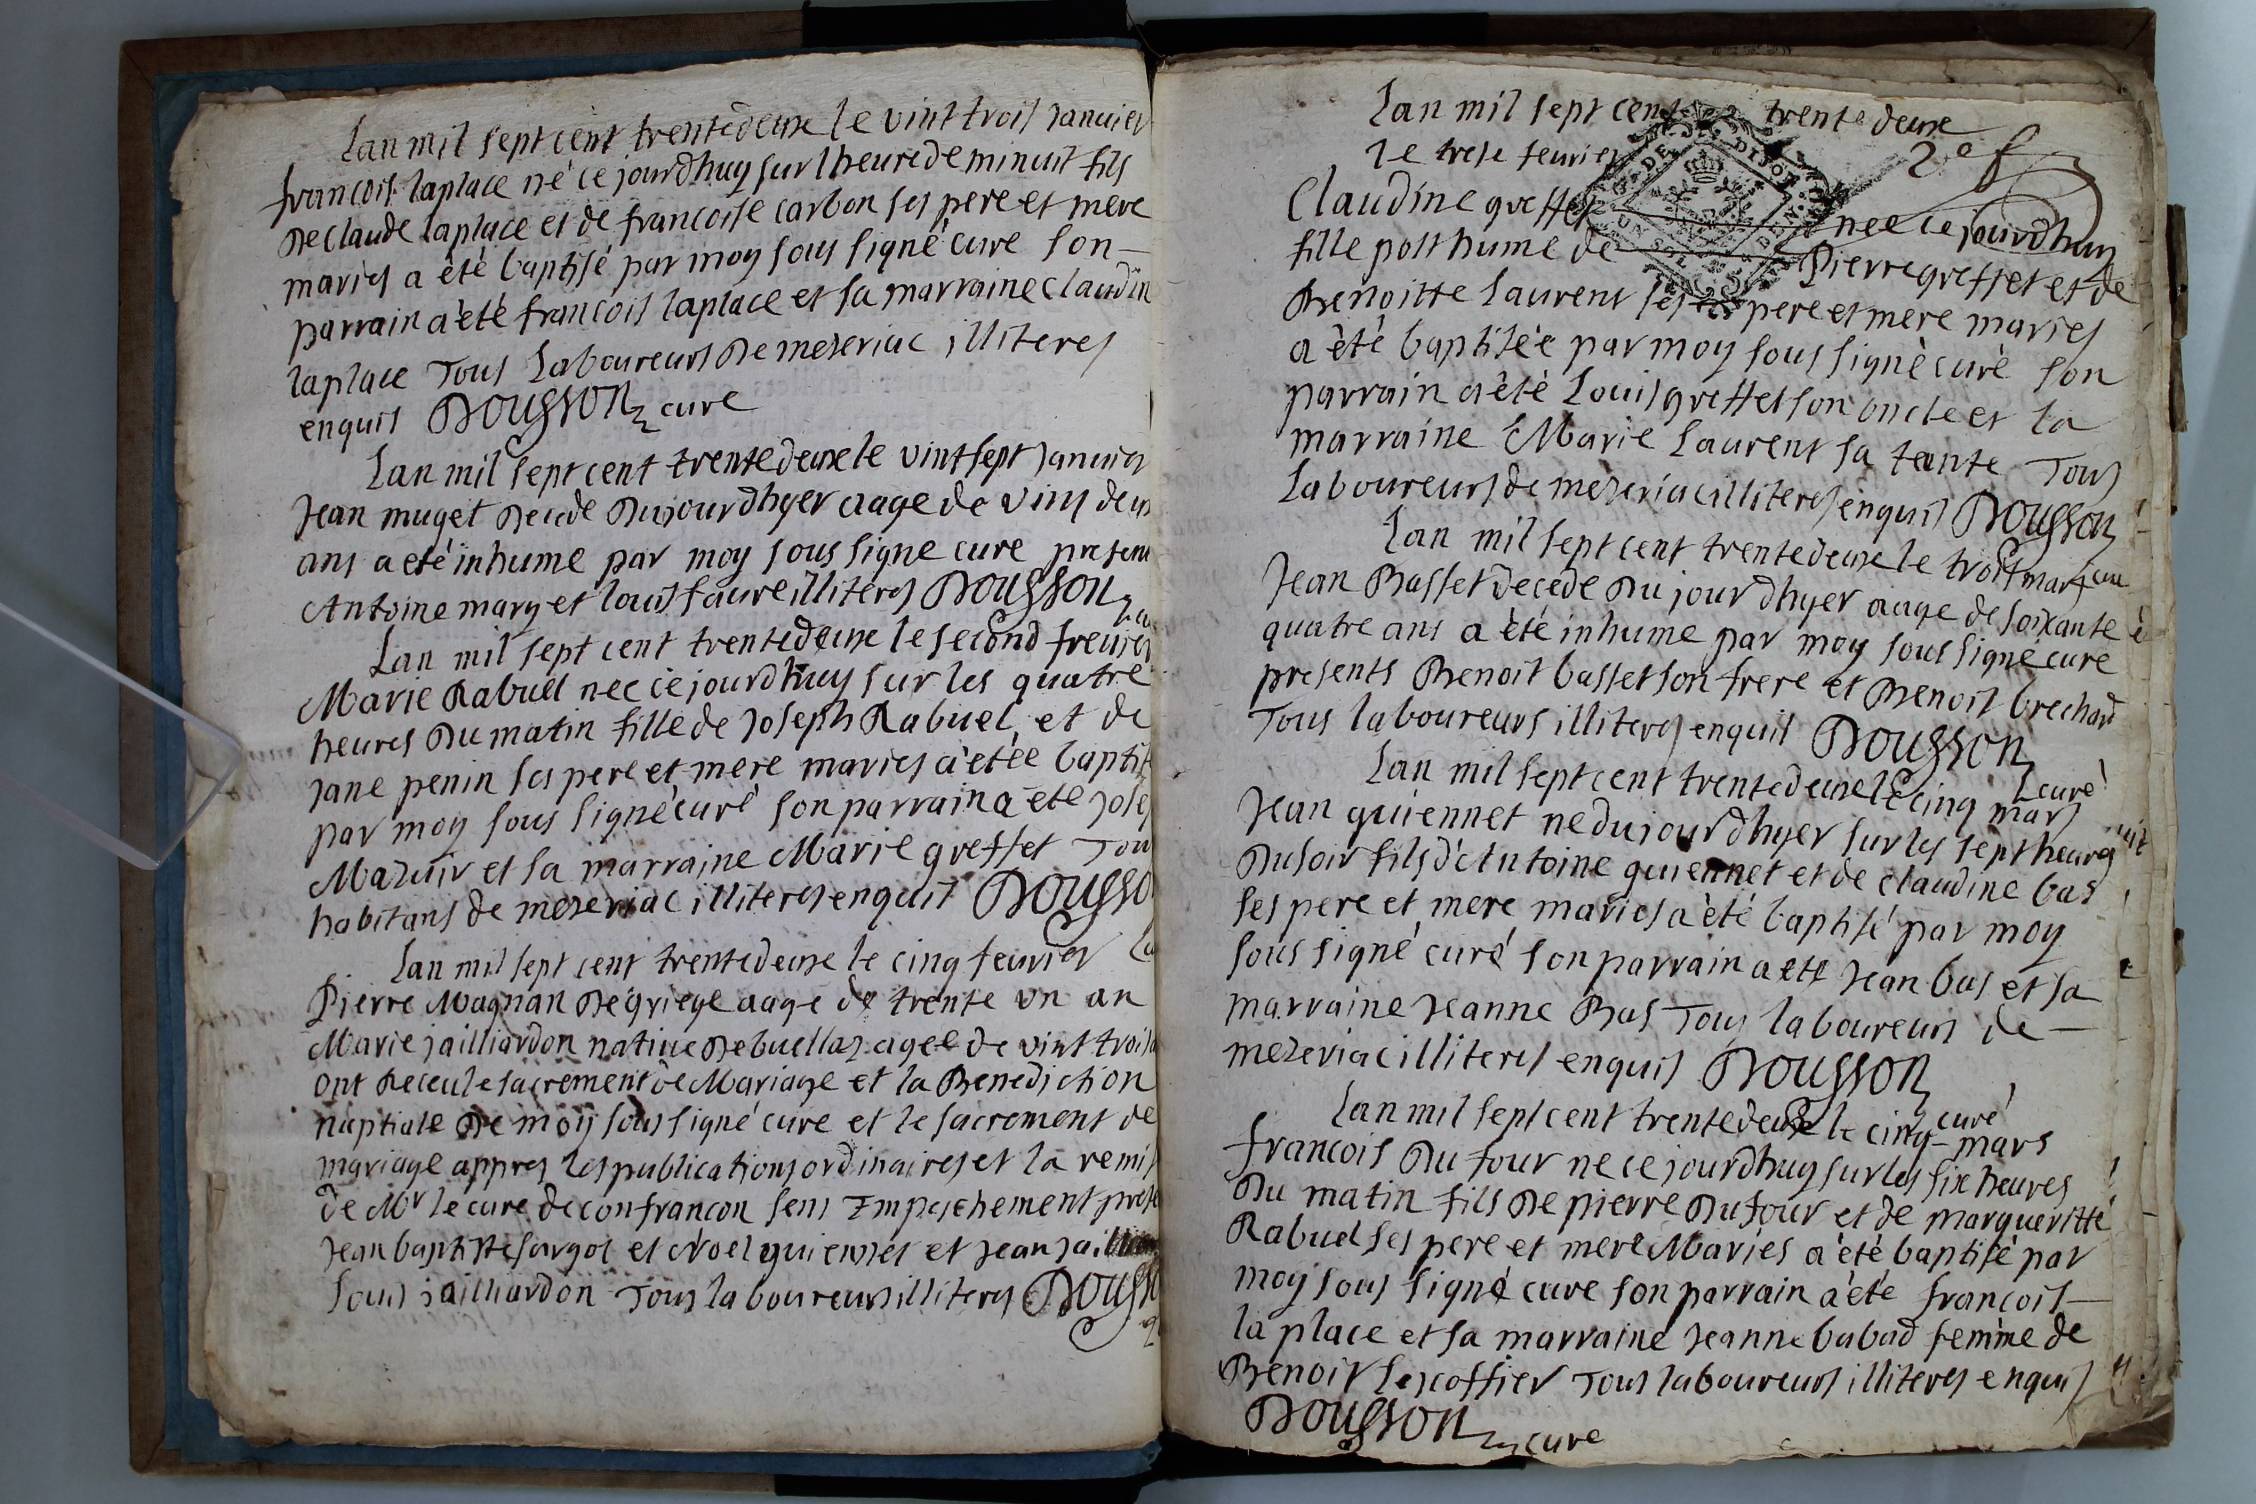 Lan mil sept cent trentedeuxe le vint trois janvier
francois laplace né ce jourdhuy sur lheure de minuit fils
de claude laplace et de francoise carbon ses pere et mere
mariés a été baptisé par moy sous signé cure son
parrain a été francois laplace et sa marraine claudin
laplace tous laboureurs de mezeriac illiteres
enquis Dousson cure
Lan mil sept cent trentedeuxe le vint sept janvier
jean muget decede du jourdhyer aage de vint deux
ans a eté inhume par moy sous signe cure present
Antoine mary et louis faure illiteres Dousson
Lan mil sept cent trentedeuxe le second fevrier
Marie Rabuel nee ce jourdhuy sur les quatre
heures du matin fille de joseph Rabuel et de
jane penin ses pere et mere mariés a étée baptis
par moy sous signé curé son parrain a eté jose
Mazuir et sa marraine Marie greffet Tou
habitans de mezeriac illiteres enquis Dousso
Lan mil sept cent trentedeuxe le cinq feuvrier
Pierre Magnan de griege aage de trente un an
Marie jailliardon native de buellas agee de vint trois
ont Receu le sacrement de Mariage et la Benediction
nuptiale de moy sous signé cure et le sacrement de
mariage appres les publications ordinaires et la remis
de Mr le cure de confrancon sens Empeschement prese
jean baptiste et Noel guiennet et jean
Louis jailliardon Tous laboureurs illiteres Douss
Lan mil sept cent trente deuxe
le trese feuvrier 2e f
DE DIJON
Claudine greffet nee ce jourdhuy
fille posthume de Pierre greffet et de
Benoitte Laurent ses pere et mere maries
a été baptisée par moy sous signé curé son
parrain a été Louis greffet son oncle et la
marraine Marie Laurent sa tante Tous
Laboureurs de mezeriac illiteres enquis Dousson
cure
Lan mil sept cent trentedeuxe le trois mars
Jean Basset decede du jourdhyer aage de soixante é
quatre ans a été inhume par moy sous signé cure
presents Benoit basset son frere et Benoit brechard
Tous laboureurs illiteres enquis Dousson
curé
Lan mil sept cent trentedeuxe le cinq mars
Jean guiennet ne du jourdhyer sur les sept heures
du soir fils d'Antoine guiennet et de claudine bas
ses pere et mere maries a été baptisé par moy
sous signé curé son parrain a eté Jean bas et sa
marraine Jeanne Bas Tous laboureurs de
mezeriac illiteres enquis Dousson
curé
Lan mil sept cent trentedeuxe le cinq mars
francois Du four ne ce jourdhuy sur les six heures
du matin fils de pierre Dufour et de margueritte
Rabuel ses pere et mere Mariés a été baptisé par
moy sous signé cure son parrain a été francois
la place et sa marraine jeanne babad femme de
Benoit Lescoffier Tous laboureurs illiteres enquis
Dousson cure